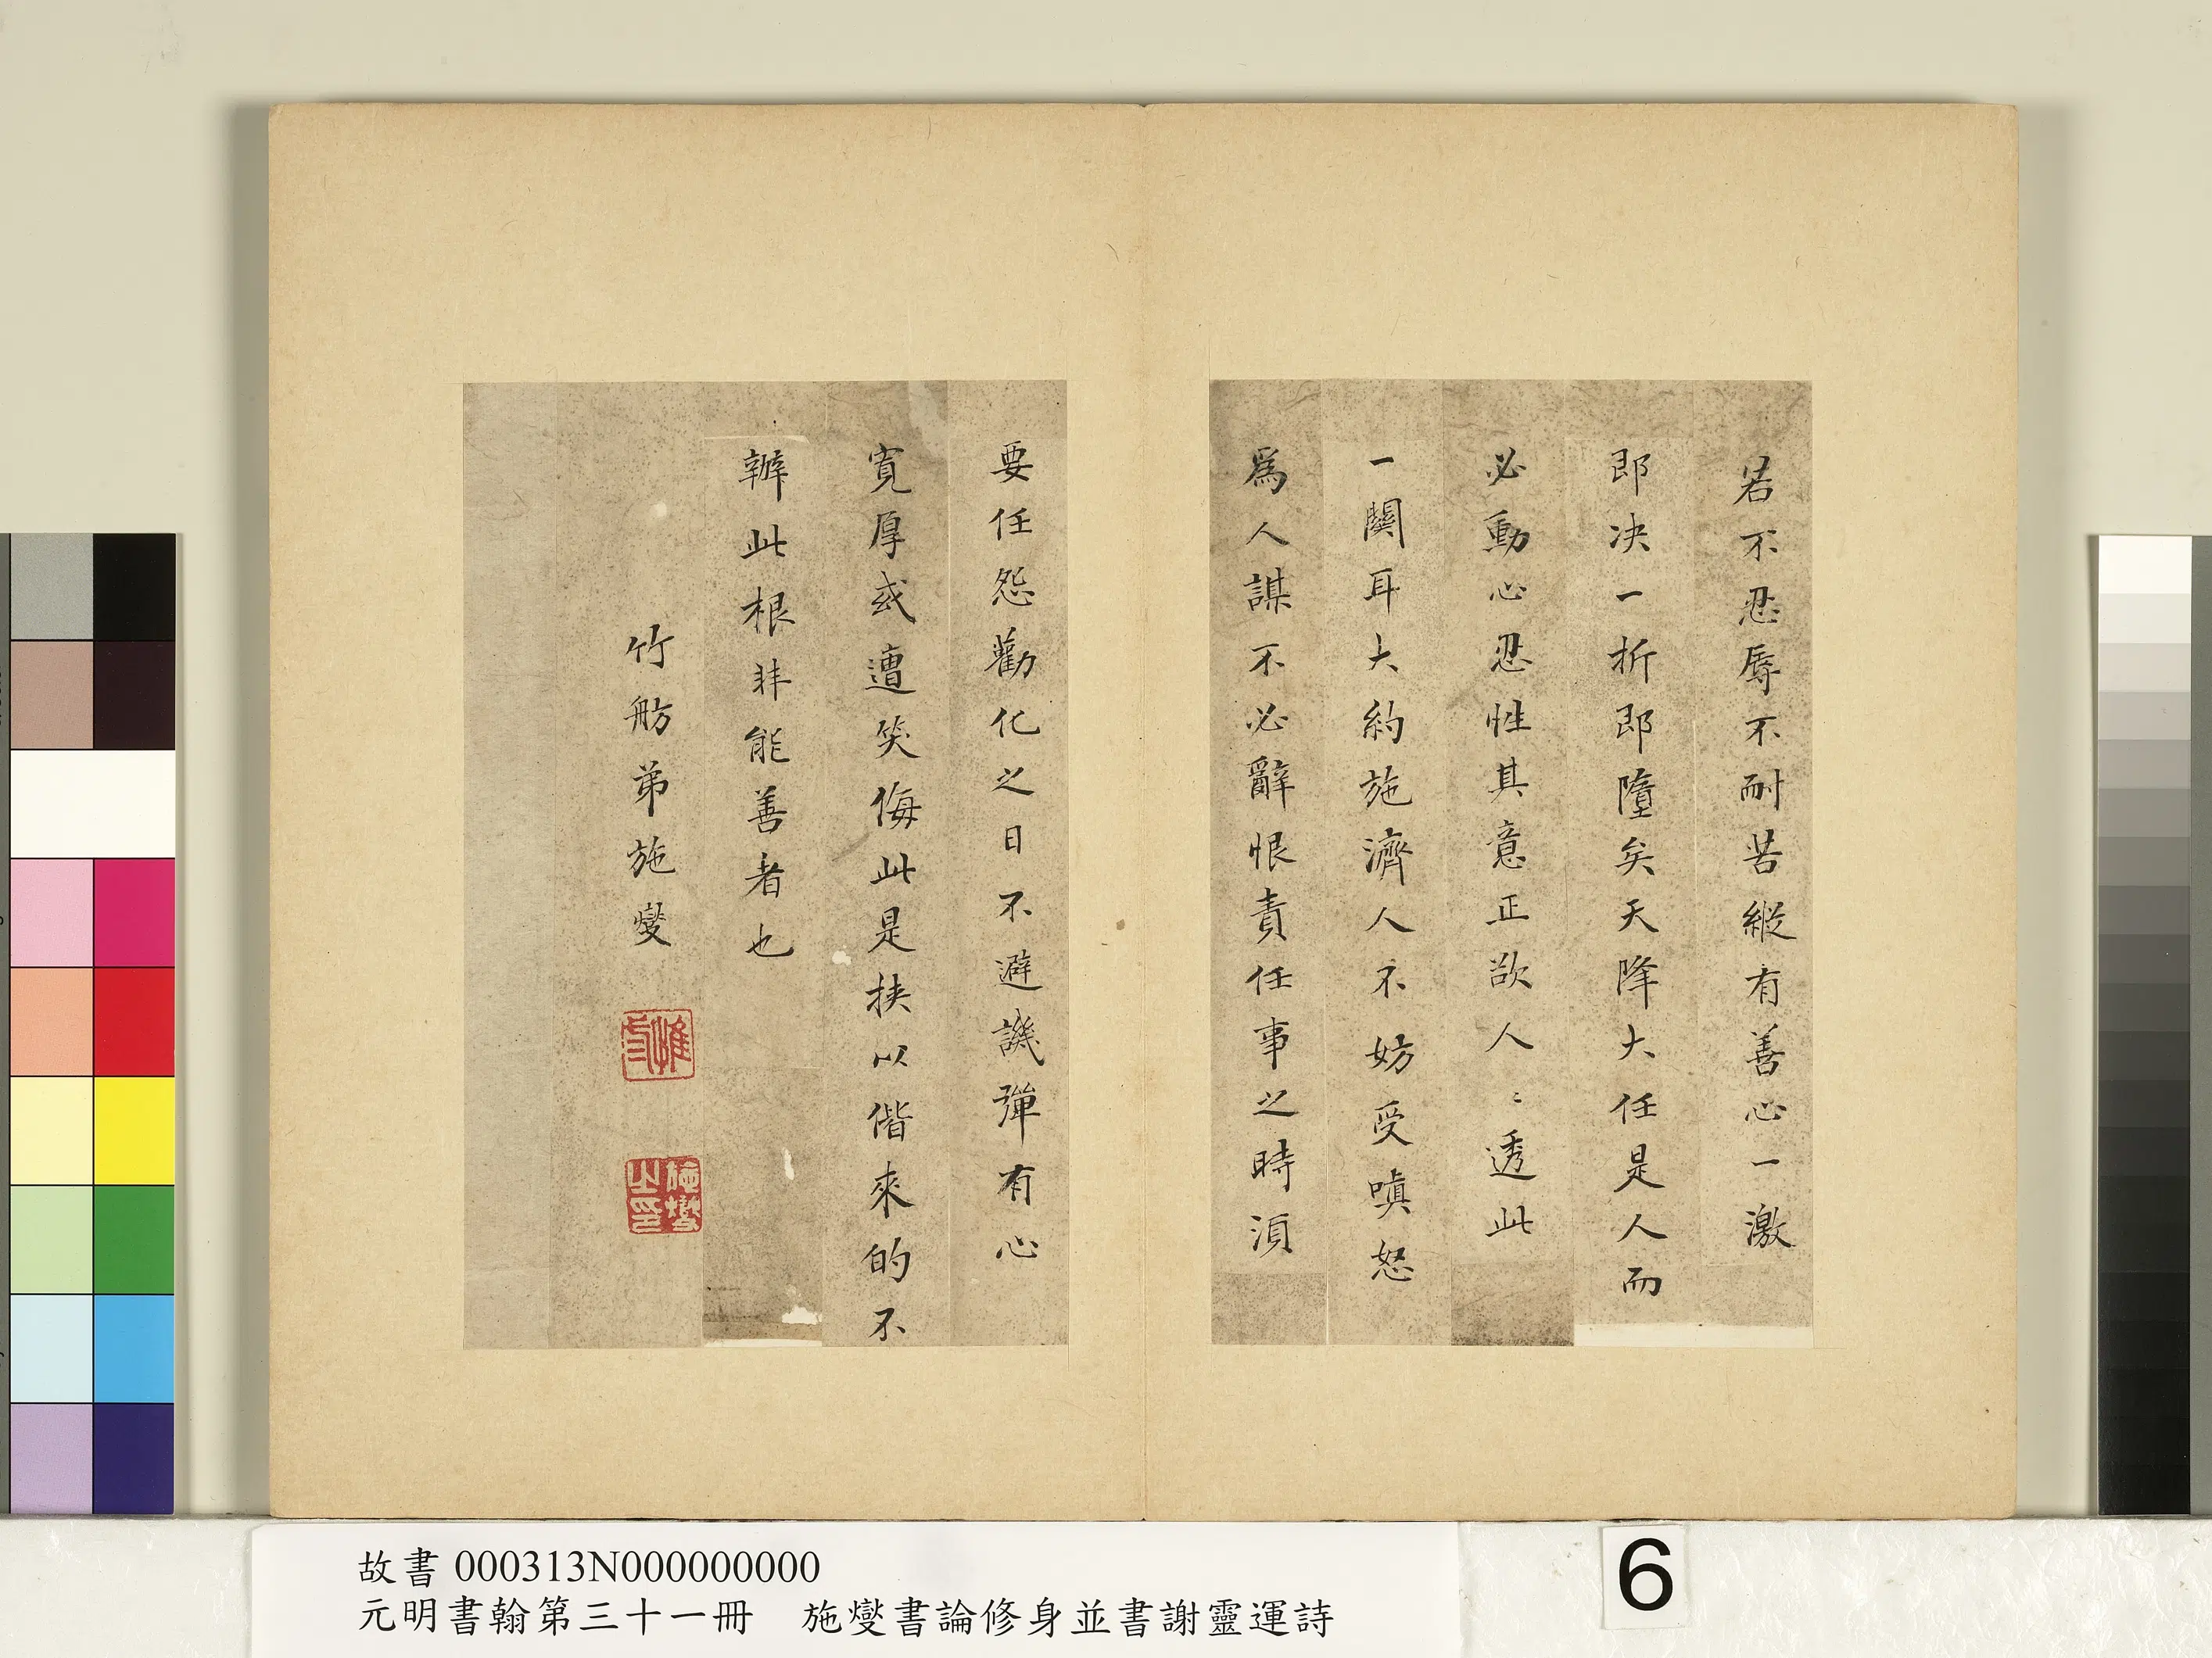 若不忍辱不耐苦縱有善心一激
即决一折即墮矣天降大任是人而
必動心忍性其意正欲人〻透此
一關耳大約施濟人不妨受嗔怒
爲人謀不必辭恨責任事之時須
要任怨勸化之日不避譏彈有心
寬厚或遭笑侮此是挾以偕來的不
辦此根非能善者也
竹舫弟施燮
施燮之印
故書 000313N000000000
元明書翰第三十一冊 施燮書論修身並書謝靈運詩
6